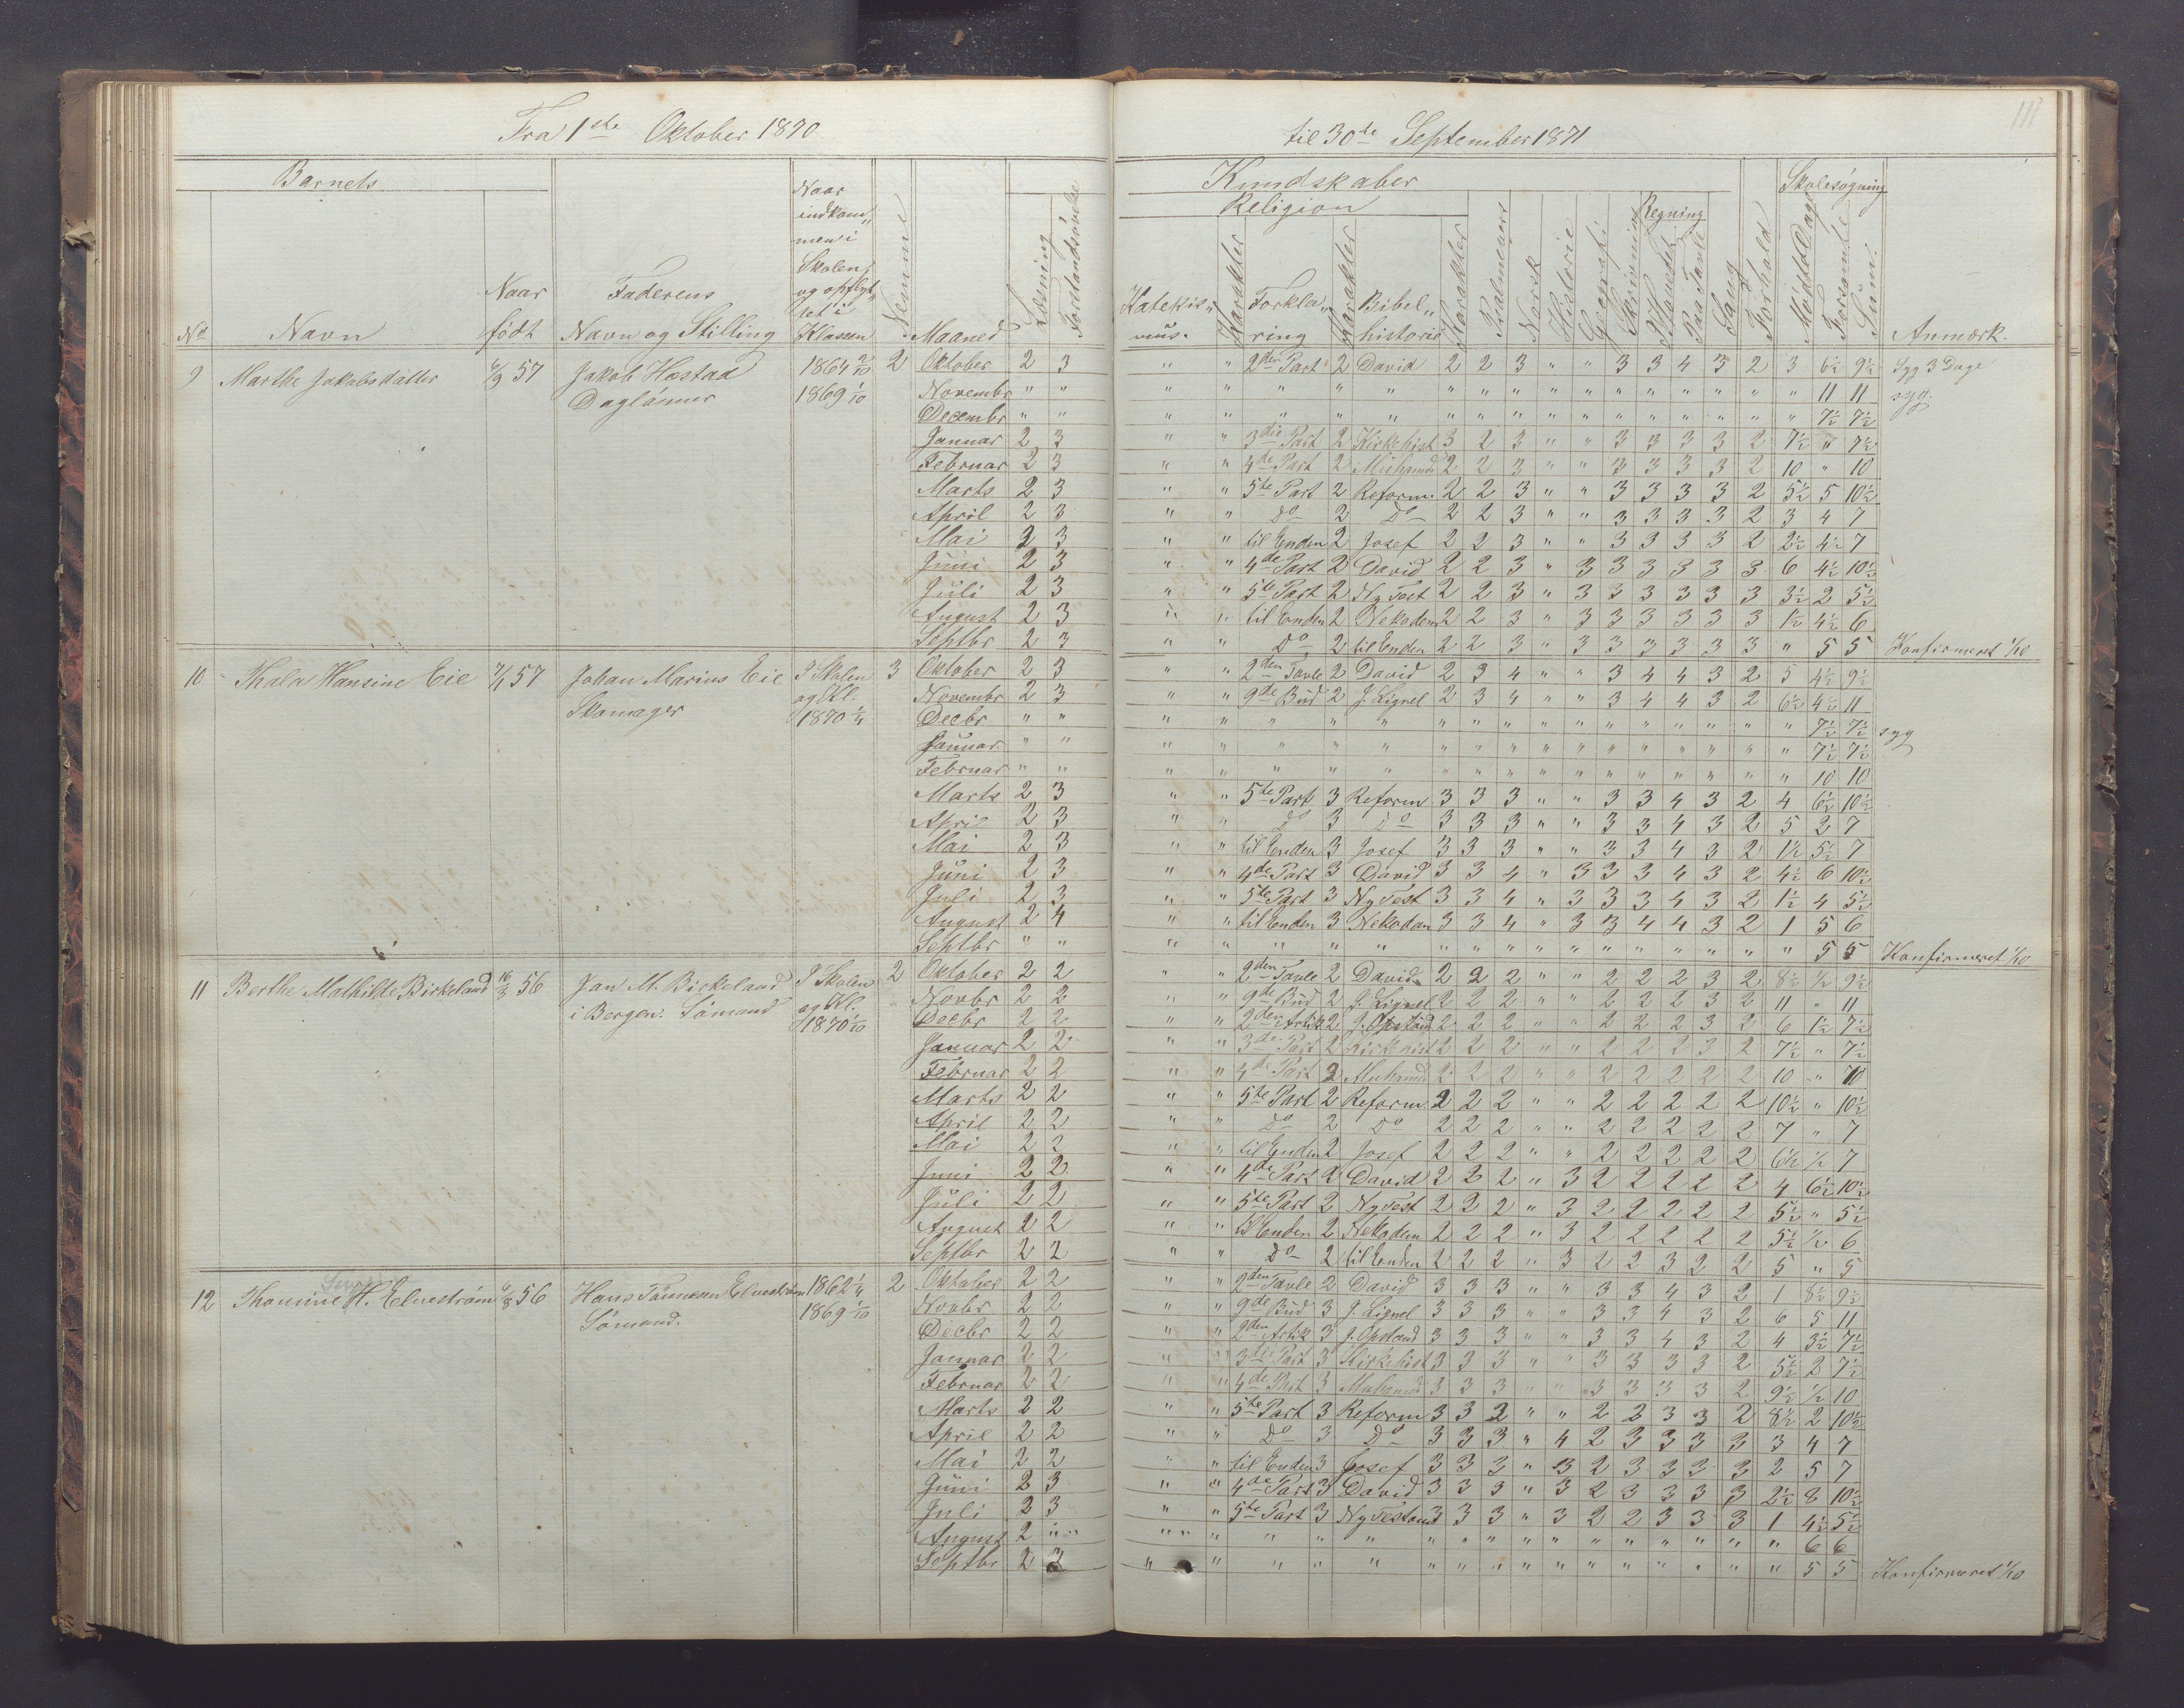 Fra 1ste Oktober 1870
til 30te September 1871
Barnets
Kundskaber
Skolesøgning
Religion
Regning
No
Navn
Naar født
Faderens Navn og Stilling
Naar indkommen i Skolen, og opflyttet i Klassen
Nemme
Maaned
Læsning
Forstandsøvelse
Katekis„mus.
Karakter
Forkla„ring
Karakter
Bibel„historie
Karakter
Psalmevers
Norsk
Historie
Geografi
Skrivning
I Hovedet
Paa Tavle
Sang
Forhold
Mødte Dage
Forsømte
Sum
Anmærk.
9 Marthe Jakobsdatter 6/9 57 Jakob Hæstad 1864 2/10 2 Oktober 2 3 " " 2den Part 2 David 2 2 3 " " 3 3 4 3 2 3 6½ 9½ Syg 3 Dage
Daglönner 1869 1/10 Novembr " " " " " " " " " " " " " " " " " " 11 11 syg.
Decembr " " " " " " " " " " " " " " " " " " 7½ 7½
Januar 2 3 " " 3die Part 2 Kirkehist 3 2 3 " " 3 3 3 3 2 7½ " 7½
Februar 2 3 " " 4de Part 2 Muhamed 2 2 3 " " 3 3 3 3 2 10 " 10
Marts 2 3 " " 5te Part 2 Reform. 2 2 3 " " 3 3 3 3 2 5½ 5 10½
April 2 3 " " Do 2 Do 2 2 3 " " 3 3 3 3 2 3 4 7
Mai 2 3 " " til Enden 2 Josef 2 2 3 " " 3 3 3 3 2 2½ 4½ 7
Juni 2 3 " " 4de Part 2 David 2 2 3 " 3 3 3 3 3 3 6 4½ 10½
Juli 2 3 " " 5te Part 2 Ny Test 2 2 3 " 3 3 3 3 3 3 3½ 2 5½
August 2 3 " " til Enden 2 Nekodem 2 2 3 " 3 3 3 3 3 3 1½ 4½ 6
Septbr 2 3 " " Do 2 til Enden 2 2 3 " 3 3 3 3 3 3 " 5 5 Konfirmeret 1/10
10 Thala Hansine Eie 7/11 57 Johan Marius Eie I Skolen 3 Oktober 2 3 " " 2den Tavle 2 David 2 3 4 " " 3 4 4 3 2 5 4½ 9½
Skomager og Kl. Novembr 2 3 " " 9de Bud 2 J. Lignel 2 3 4 " " 3 4 4 3 2 6½ 4½ 11
1870 1/4 Decbr " " " " " " " " " " " " " " " " " " 7½ 7½ syg
Januar " " " " " " " " " " " " " " " " " " 7½ 7½
Februar " " " " " " " " " " " " " " " " " " 10 10
Marts 2 3 " " 5te Part 3 Reform 3 3 3 " " 3 3 4 3 2 4 6½ 10½
April 2 3 " " Do 3 Do 3 3 3 " " 3 3 4 3 2 5 2 7
Mai 2 3 " " til Enden 3 Josef 3 3 3 " " 3 3 4 3 2 1½ 5½ 7
Juni 2 3 " " 4de Part 3 David 3 3 4 " 3 3 3 4 3 2 4½ 6 10½
Juli 2 3 " " 5te Part 3 Ny Test 3 3 4 " 3 3 3 4 3 2 1½ 4 5½
August 2 4 " " til Enden 3 Nekodam 3 3 4 " 3 3 4 4 3 2 1 5 6
Septbr " " " " " " " " " " " " " " " " " " 5 5 Konfirmeret 1/10
11 Berthe Mathilde Birkeland 16/3 56 Jan M. Birkeland I Skolen 2 Oktober 2 2 " " 2den Tavle 2 David 2 2 2 " " 2 2 2 3 2 8½ ½ 9½
i Bergen. Sömand og Kl. Novbr 2 2 " " 9de Bud 2 J. Lignel 2 2 2 " " 2 2 2 3 2 11 " 11
1870 1/10 Decbr 2 2 " " 2den Artik 2 J. Opstand 2 2 2 " " 2 2 2 3 2 6 1½ 7½
Januar 2 2 " " 3die Part 2 Kirkehist 2 2 2 " " 2 2 2 3 2 7½ " 7½
Februar 2 2 " " 4de Part 2 Muhamed 2 2 2 " " 2 2 2 2 2 10 " 10
Marts 2 2 " " 5te Part 2 Reform 2 2 2 " " 2 2 2 2 2 10½ " 10½
April 2 2 " " Do 2 Do 2 2 2 " " 2 2 2 2 2 7 " 7
Mai 2 2 " " til Enden 2 Josef 2 2 2 " " 2 2 2 2 2 6½ ½ 7
Juni 2 2 " " 4de Part 2 David 2 2 2 " 3 2 2 2 2 2 4 6½ 10½
Juli 2 2 " " 5te Part 2 Ny Test 2 2 2 " 3 2 2 2 2 2 5½ " 5½
August 2 2 " " til Enden 2 Nekodem 2 2 2 " 3 2 2 2 2 2 5½ ½ 6
Septbr 2 2 " " Do 2 til Enden 2 2 2 " 3 2 2 3 2 2 5 " 5
12 Thomine H. Elvestrøm 6/8 56 Hans Tönnesen Elvestrøm 1862 1/4 2 Oktober 2 2 " " 2den Tavle 2 David 3 3 3 " " 3 3 4 3 2 1 8½ 9½
Sömand. 1869 1/10 Novbr 2 2 " " 9de Bud 3 J. Lignel 3 3 3 " " 3 3 4 3 2 6 5 11
Decbr 2 2 " " 2den Artik 3 J. Opstand 3 3 3 " " 3 3 4 3 2 4 3½ 7½
Januar 2 2 " " 3die Part 3 Kirkehist 3 3 3 " " 3 3 3 3 2 5½ 2 7½
Februar 2 2 " " 4de Part 3 Muhamed 3 3 3 " " 3 3 3 3 2 9½ ½ 10
Marts 2 2 " " 5te Part 3 Reform 3 3 2 " " 2 2 3 3 2 8½ 2 10½
April 2 2 " " Do 3 Do 3 3 3 " 4 2 3 3 3 3 3 4 7
Mai 2 2 " " til Enden 3 Josef 3 3 3 " 3 2 3 3 3 3 2 5 7
Juni 2 3 " " 4de Part 3 David 3 3 3 " 3 2 3 3 3 3 2½ 8 10½
Juli 2 3 " " 5te Part 3 Ny Testam 3 3 3 " 3 2 2 3 3 3 1 4½ 5½
August 2 " " " " " " " " " " " " " " " " " 6 6
Septbr 2 3 " " " " " " " " " " " " " " " " 5 5 Konfirmeret 1/10